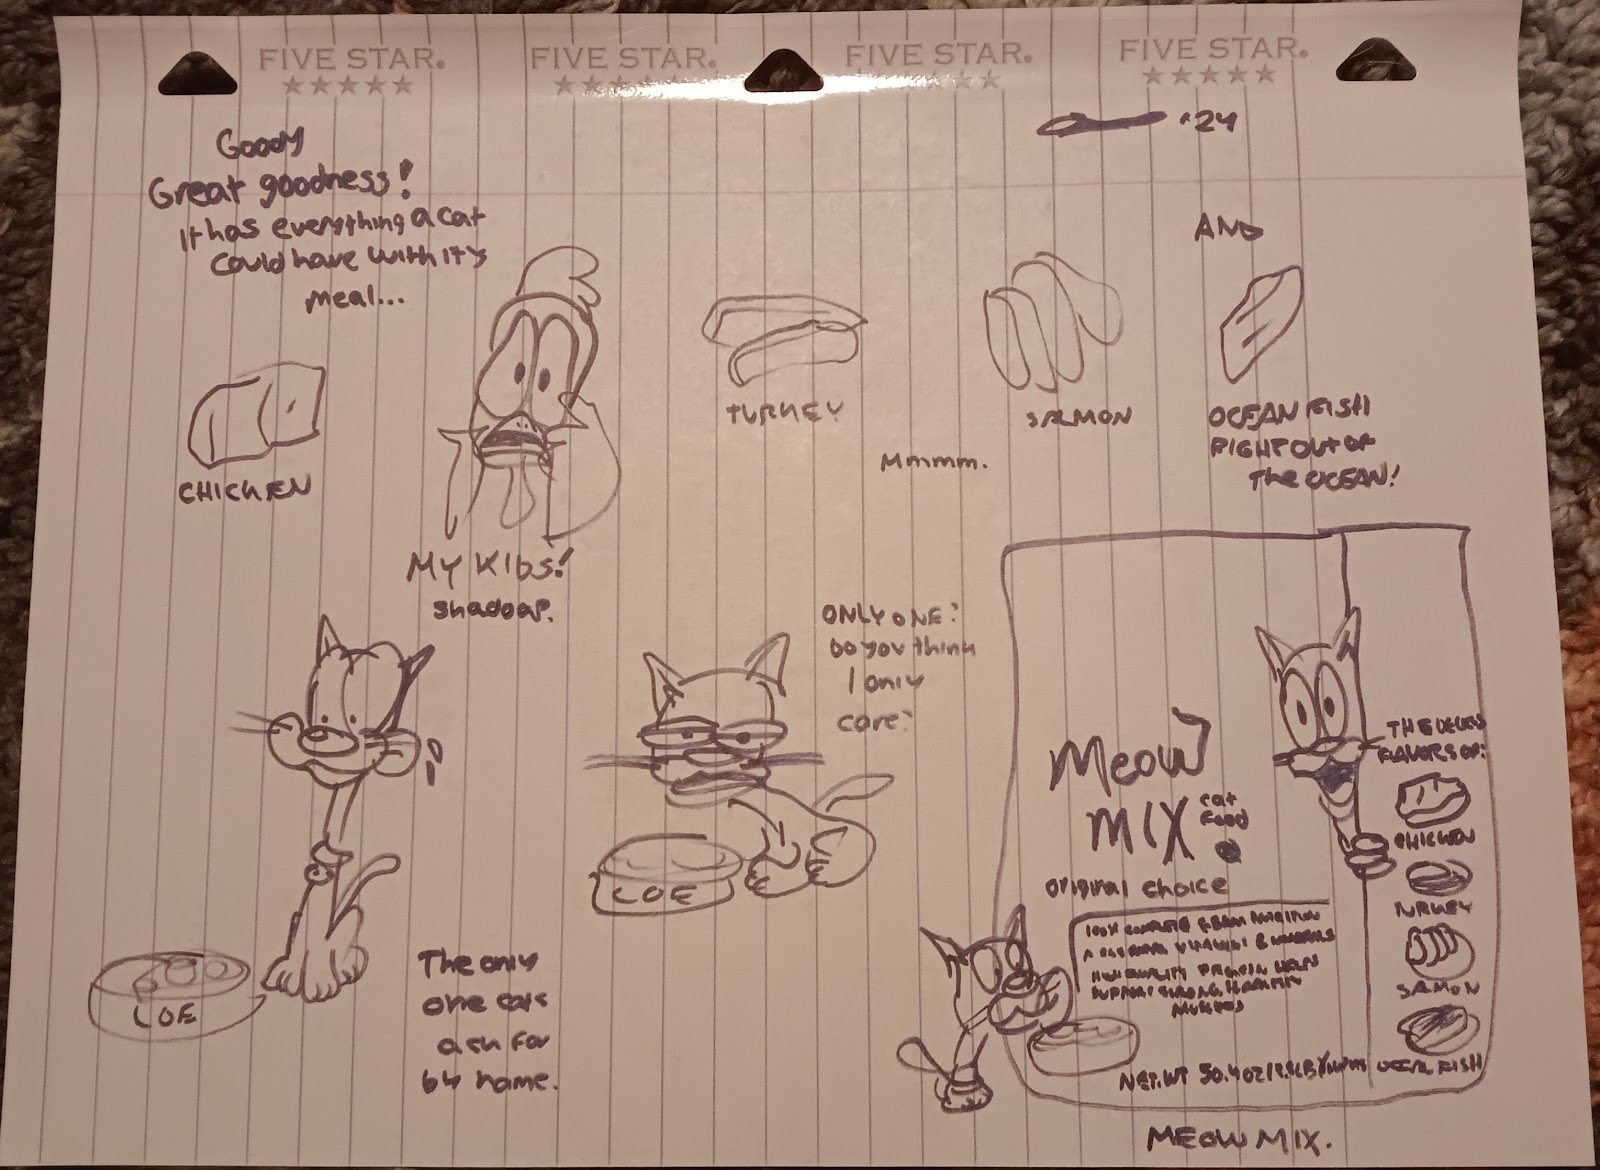 FIVE STAR. FIVE STAR. FIVE STAR. FIVE STAR.
'24
Goody
Great goodness!
It has everything a cat
could have with it's
meal...
CHICKEN
MY KIDS!
TURKEY
Mmmm.
SALMON
AND
OCEAN FISH
RIGHT OUT OF
The OCEAN!
LOE
The only
one cats
ask for
by name.
ONLY ONE?
Do you think
I only
care?
LOE
Meow
MIX
cat
food
original choice
100% COMPLETE
HIGH QUALITY PROTEIN HELPS
SUPPORT STRONG, HEALTHY
MUSCLES
NET.WT 50.4 OZ
FLAVORS OF:
CHICKEN
TURKEY
SALMON
OCEAN FISH
MEOW MIX.